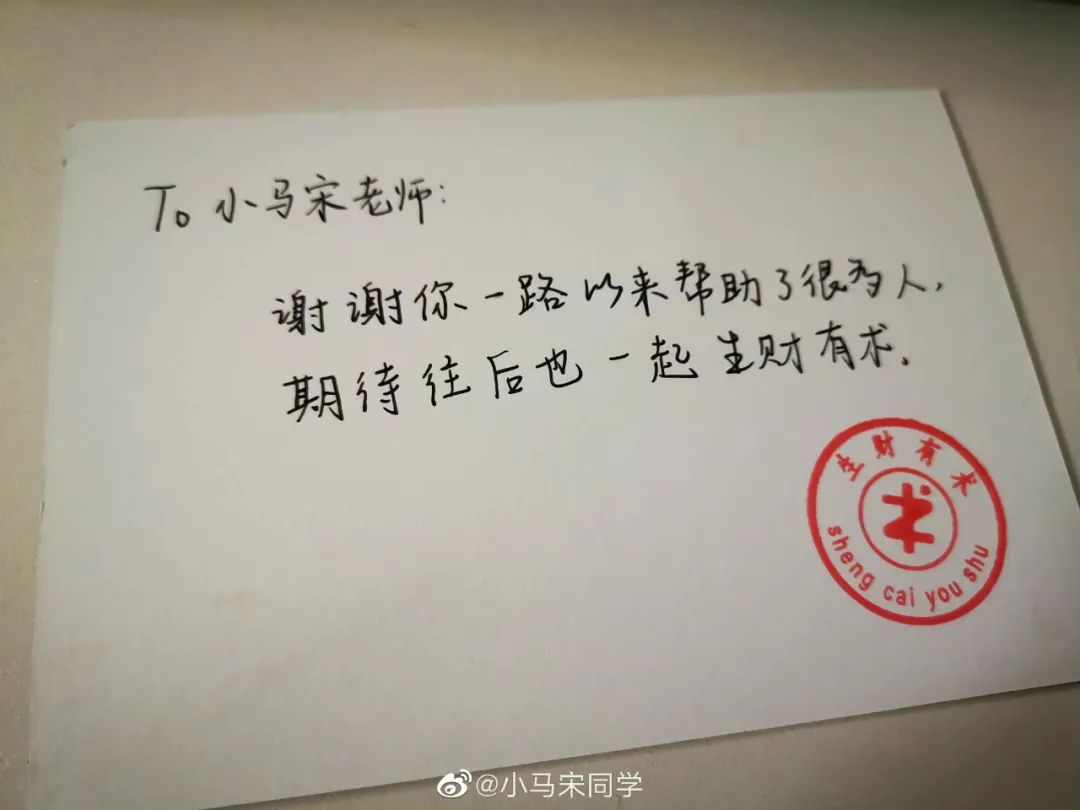 To 小马宋老师:
谢谢你一路以来帮助了很多人,
期待往后也一起生财有术.
生财有术
术
sheng cai you shu
@小马宋同学